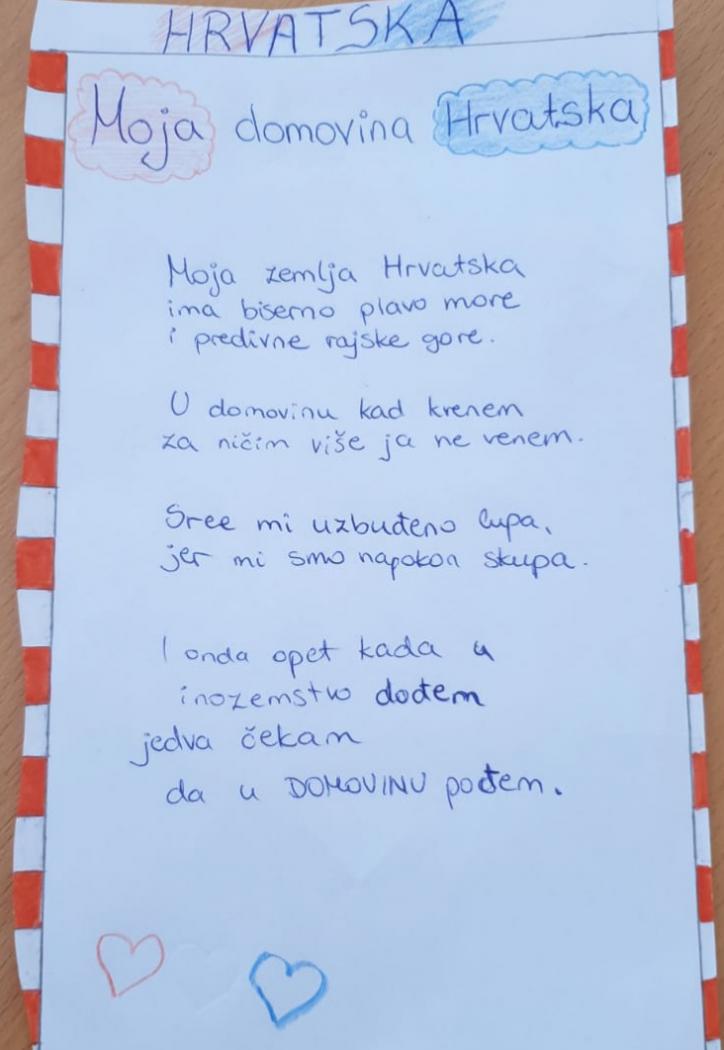 HRVATSKA
Moja domovina Hrvatska
Moja zemlja Hrvatska
ima biserno plavo more
i predivne rajske gore.
U domovinu kad krenem
za ničim više ja ne venem.
Srce mi uzbuđeno lupa,
jer mi smo napokon skupa.
I onda opet kada u
inozemstvo dođem
jedva čekam
da u DOMOVINU pođem.